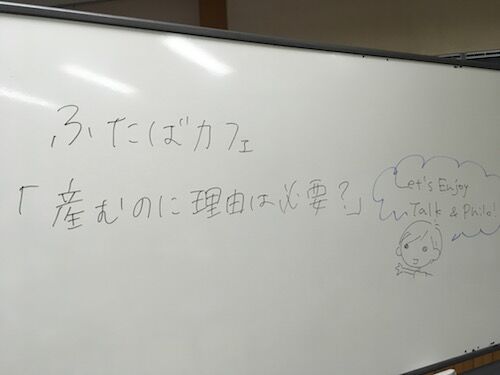 ふたばカフェ
「産むのに理由は必要?」
Let's Enjoy
Talk & Philo!